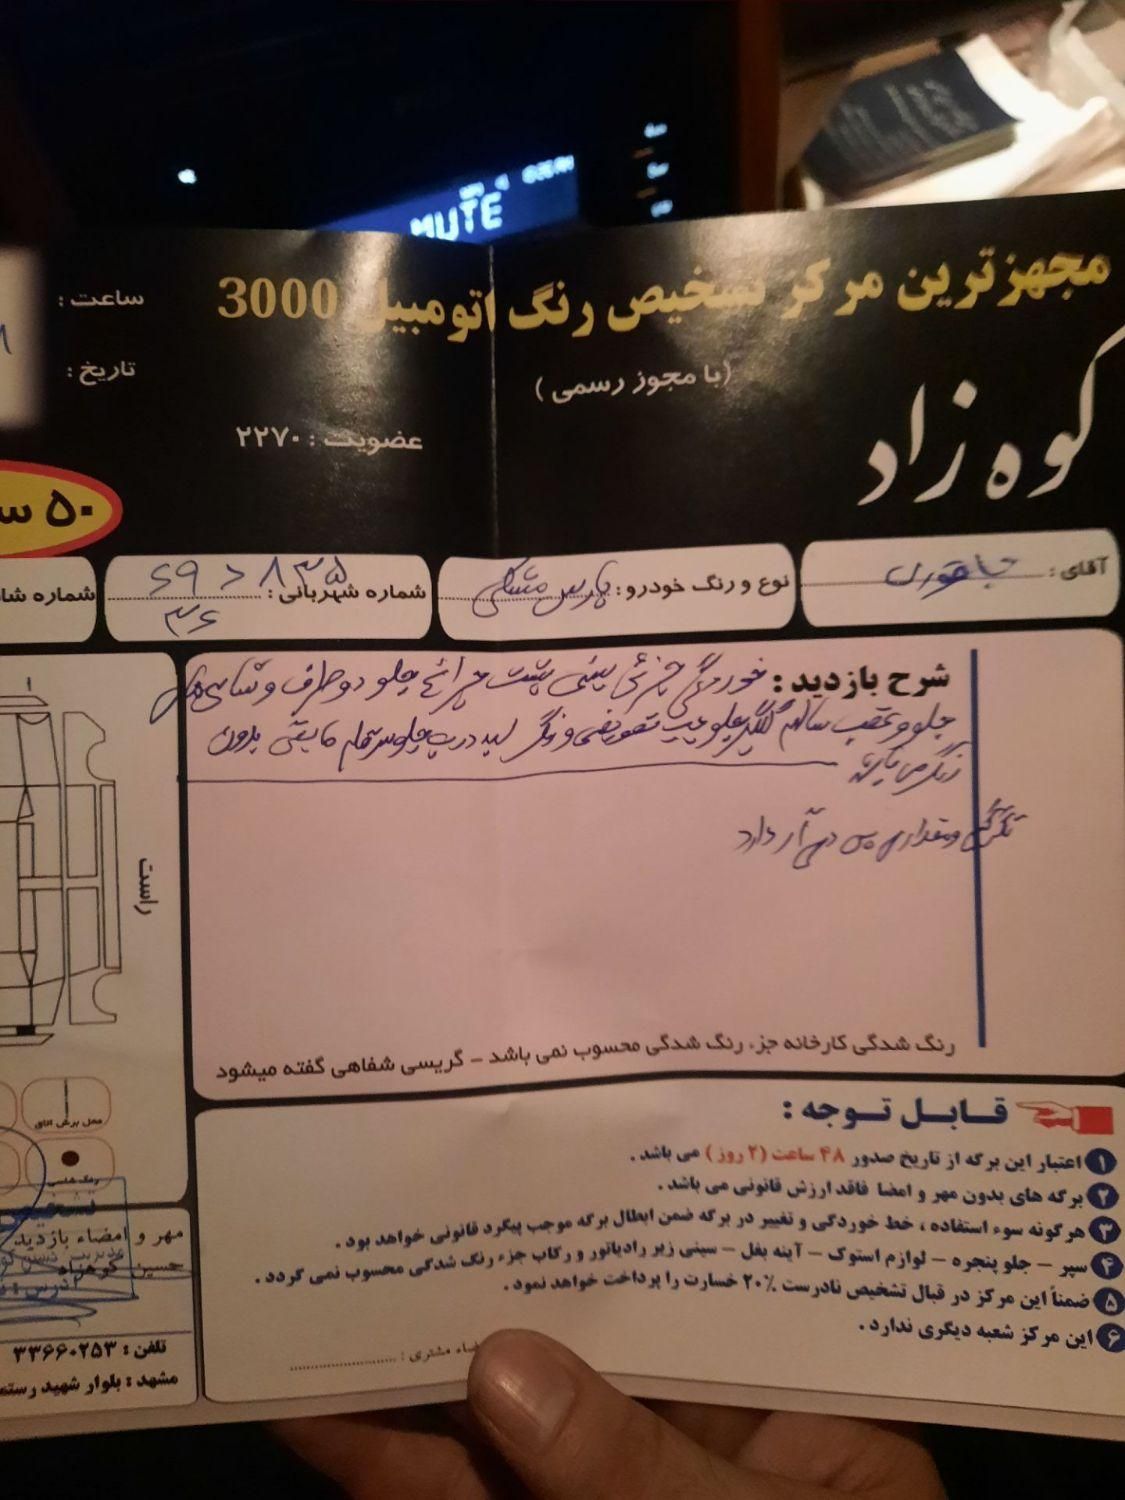 MUTE
مجهزترین مرکز تشخیص رنگ اتومبیل 3000
(با مجوز رسمی)
کوه زاد
ساعت :
تاریخ :
عضویت : ۲۲۷۰
۵۰
آقای :
نوع و رنگ خودرو : پارس مشکی
شماره شهربانی : ۸۳۵
۳۶
شماره
شرح بازدید : خوردگی جزئی سینی پشت چراغ جلو دو طرف و شاسی های
جلو و عقب سالم گلگیر جلو چپ تعویضی و رنگ لبه درب جلو مابقی بدون
رنگ می باشد
تگرگی و مقداری
دارد
راست
رنگ شدگی کارخانه جزء رنگ شدگی محسوب نمی باشد - گریسی شفاهی گفته میشود
محل برش اتاق
رنگ شاسی
قابل توجه :
۱ اعتبار این برگه از تاریخ صدور ۴۸ ساعت (۲ روز) می باشد .
۲ برگه های بدون مهر و امضا فاقد ارزش قانونی می باشد .
۳ هرگونه سوء استفاده ، خط خوردگی و تغییر در برگه ضمن ابطال برگه موجب پیگرد قانونی خواهد بود .
۴ سپر - جلو پنجره - لوازم استوک - آینه بغل - سینی زیر رادیاتور و رکاب جزء رنگ شدگی محسوب نمی گردد .
۵ ضمناً این مرکز در قبال تشخیص نادرست ۲۰٪ خسارت را پرداخت خواهد نمود .
۶ این مرکز شعبه دیگری ندارد .
مشتری :
مهر و امضاء بازدید
حسین کوهزاد
آدرس :
تلفن : ۳۳۶۶۰۲۵۳
مشهد : بلوار شهید